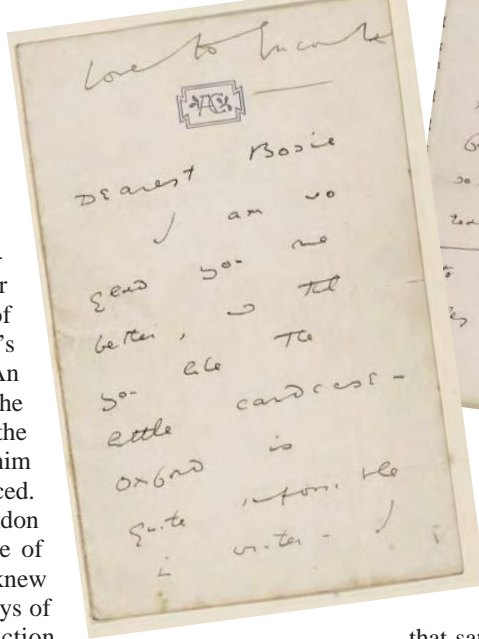 love to Encombe
AC
Dearest Bosie
I am so
glad you are
better, and that
you like the
little cardcase -
Oxford is
quite impossible
in winter - I
-
r
of
's
An
he
the
him
ced.
don
e of
knew
ys of
ction
that sa